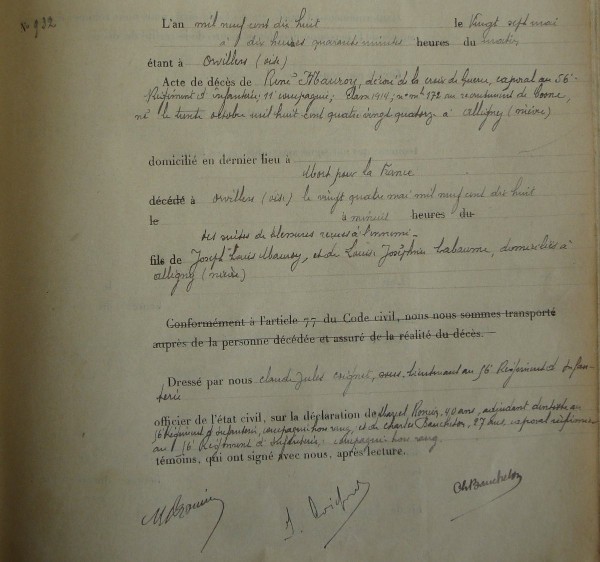 N° 932
L'an mil neuf cent dix huit le Vingt sept mai
à dix heures quarante minutes heures du matin
étant à Orvillers (oise)
Acte de décès de René Mauroy, décoré de la croix de Guerre, caporal au 56e
Régiment d'infanterie; 11e compagnie; classe 1914; n° mle 872 au recrutement de Cosne,
né le trente octobre mil huit cent quatre vingt quatorze à alligny (nièvre)
domicilié en dernier lieu à
Mort pour la France
décédé à orvillers (oise) le vingt quatre mai mil neuf cent dix huit
le à minuit heures du
des suites de blessures reçues à l'ennemi.
fils de Joseph Louis Mauroy, et de Louise Joséphine Labaume, domiciliés à
alligny (nièvre)
Conformément à l'article 77 du Code civil, nous nous sommes transporté
auprès de la personne décédée et assuré de la réalité du décès.
Dressé par nous claude Jules sous-lieutenant au 56e Régiment d'infan-
terie
officier de l'état civil, sur la déclaration de Marcel 40 ans, adjudant au
56e Régiment d'Infanterie, compagnie hors rang, et de charles Baucheton, 27 ans caporal
au 56e Régiment d'Infanterie, compagnie hors rang.
témoins, qui ont signé avec nous, après lecture.
Ch Baucheton